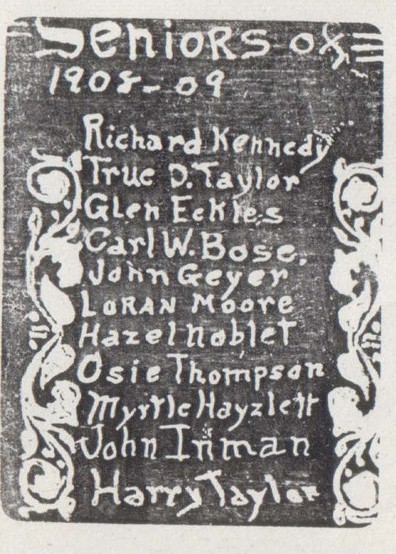 Seniors of
1908-09
Richard Kennedy
True D. Taylor
Glen Eckles
Carl W. Bose.
John Geyer
LORAN MOORE
Hazel Noblet
Osie Thompson
Myrtle Hayzlett
John Inman
Harry Taylor